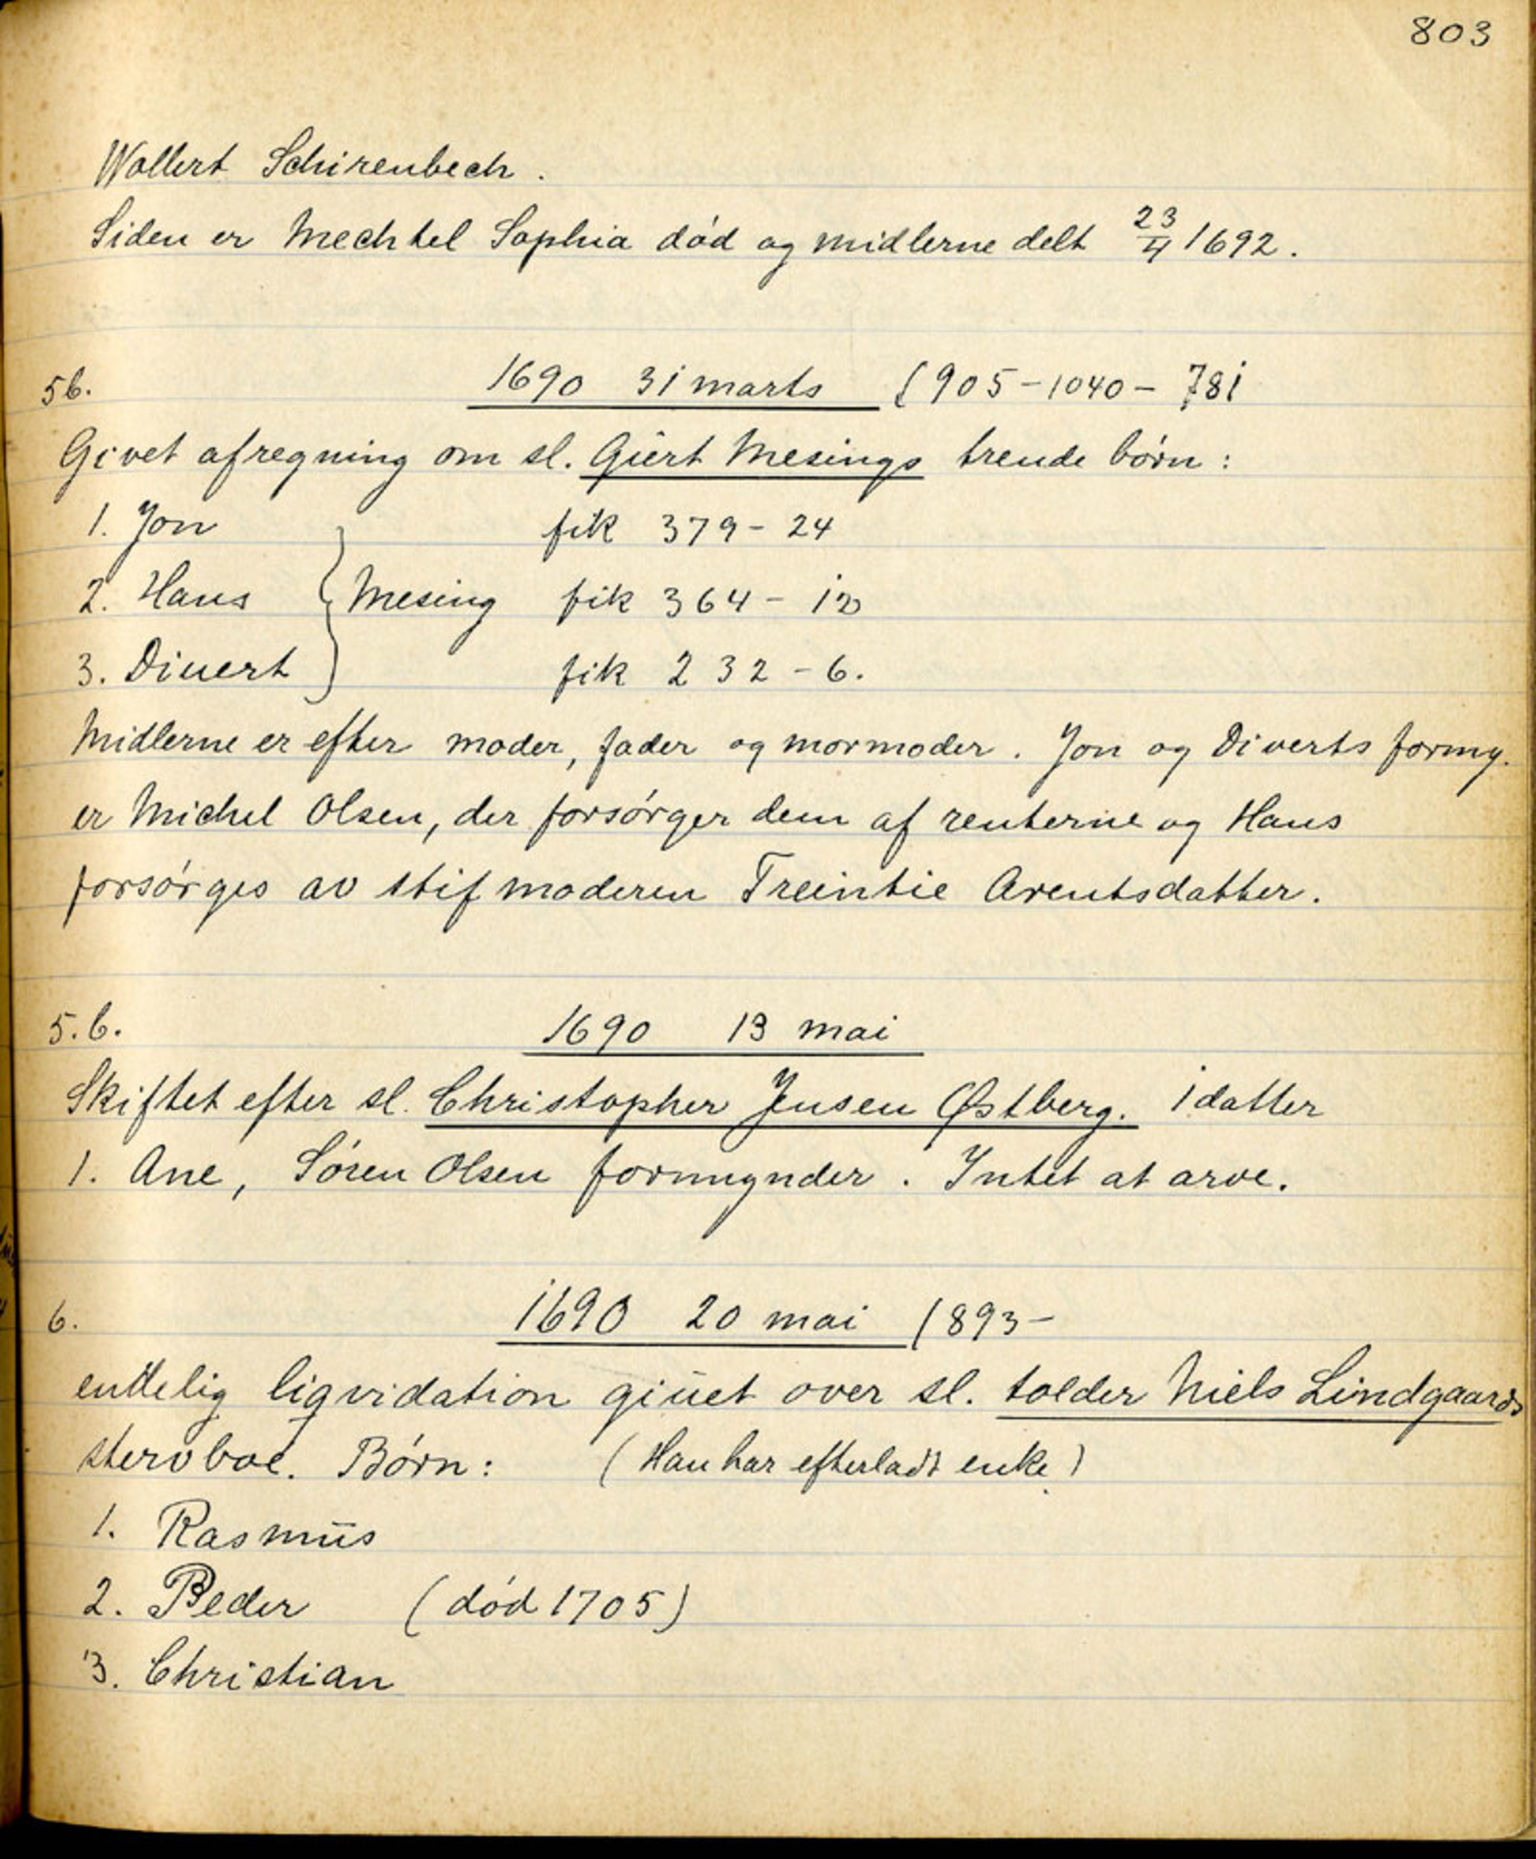 803
Wollert Schirenbech.
Siden er Mechtel Sophia død og midlerne delt 23/4 1692.
5b. 1690 31 marts (905-1040-781
Givet afregning om sl. Giert Mesings trende børn:
1. Jon fik 379-24
2. Hans } Mesing fik 364-12
3. Divert fik 232-6.
Midlerne er efter moder, fader og mormoder. Jon og Diverts formy.
er Michel Olsen, der forsørger dem af renterne og Hans
forsørges av stifmoderen Treintie Arentsdatter.
5.b. 1690 13 mai
Skiftet efter sl. Christopher Jensen Østberg. 1 datter
1. Ane, Søren Olsen formynder. Intet at arve.
6. 1690 20 mai (893-
endelig liqvidation giuet over sl. tolder Niels Lindgaards
stervboe. Børn: (Han har efterladt enke)
1. Rasmus
2. Peder (død 1705)
3. Christian